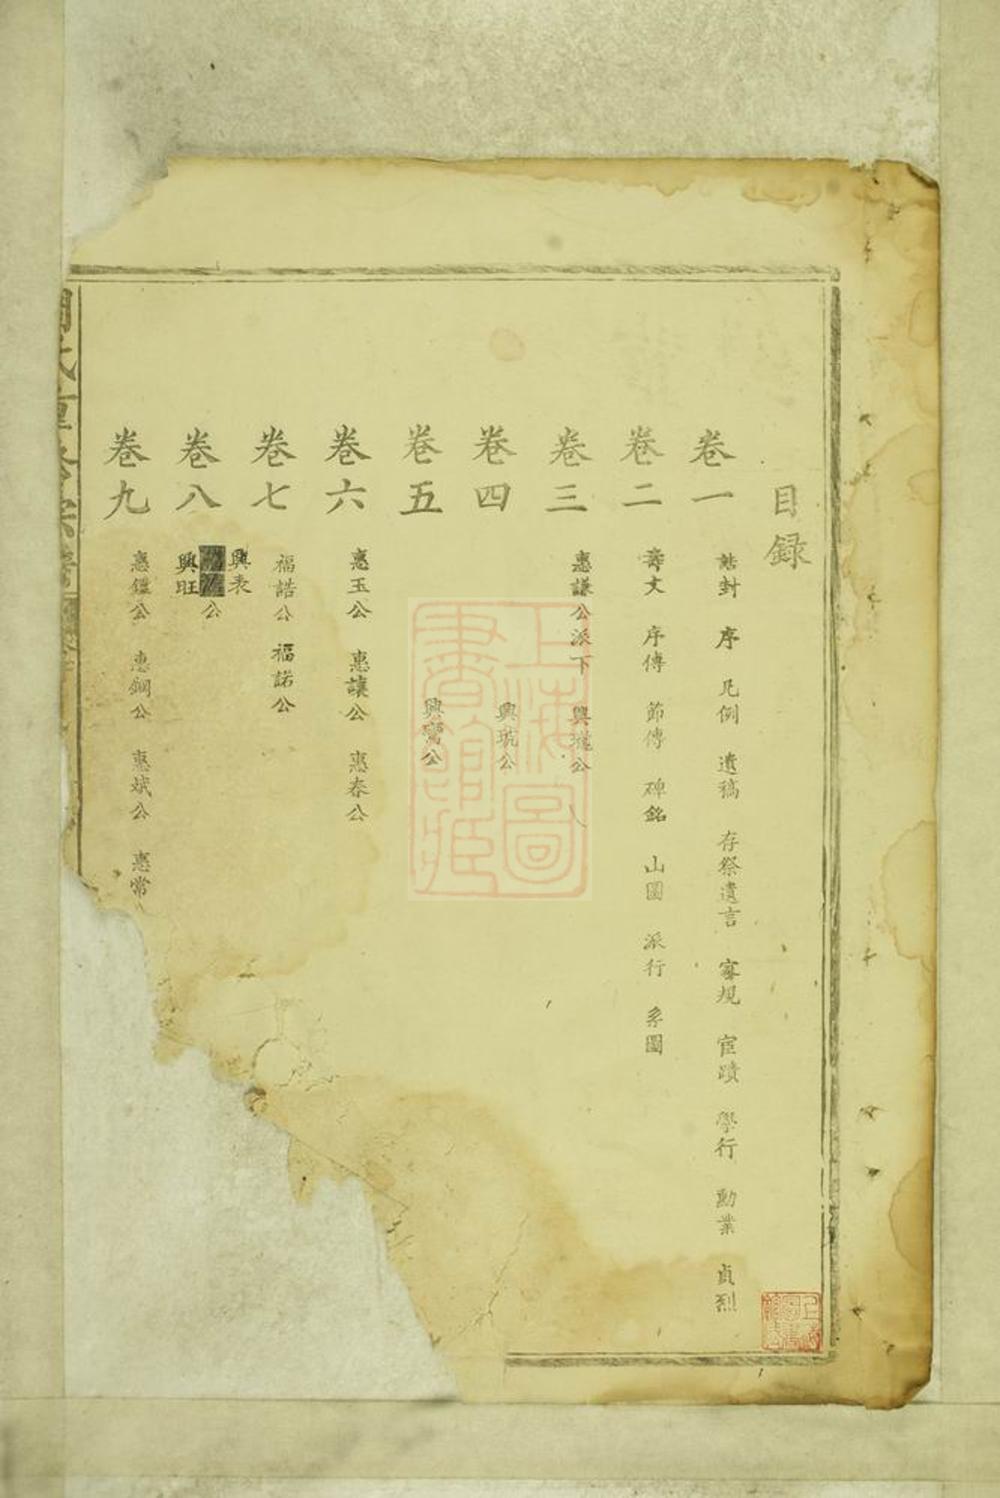 目録
卷一 誥封 序 凡例 遺稿 存祭遺言 家規 宦蹟 學行 勳業 貞烈
卷二 壽文 序傳 節傳 碑銘 山圖 派行 系圖
卷三 惠謙公派下 興瓏公
卷四 興琥公
卷五 興鸞公
卷六 惠玉公 惠讓公 惠春公
卷七 福誥公 福諾公
卷八 興表 公 興旺
卷九 惠鑑公 惠鐗公 惠斌公 惠常
上海圖書館藏
上海圖書館藏